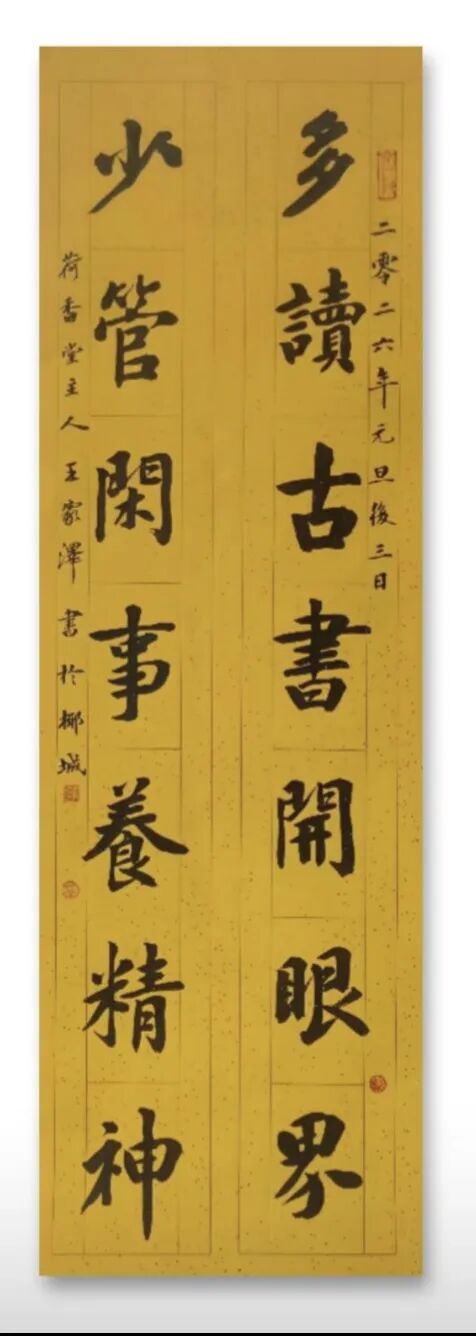 二零二六年元旦後三日
多讀古書開眼界
少管閑事養精神
荷香堂主人王家澤書於椰城